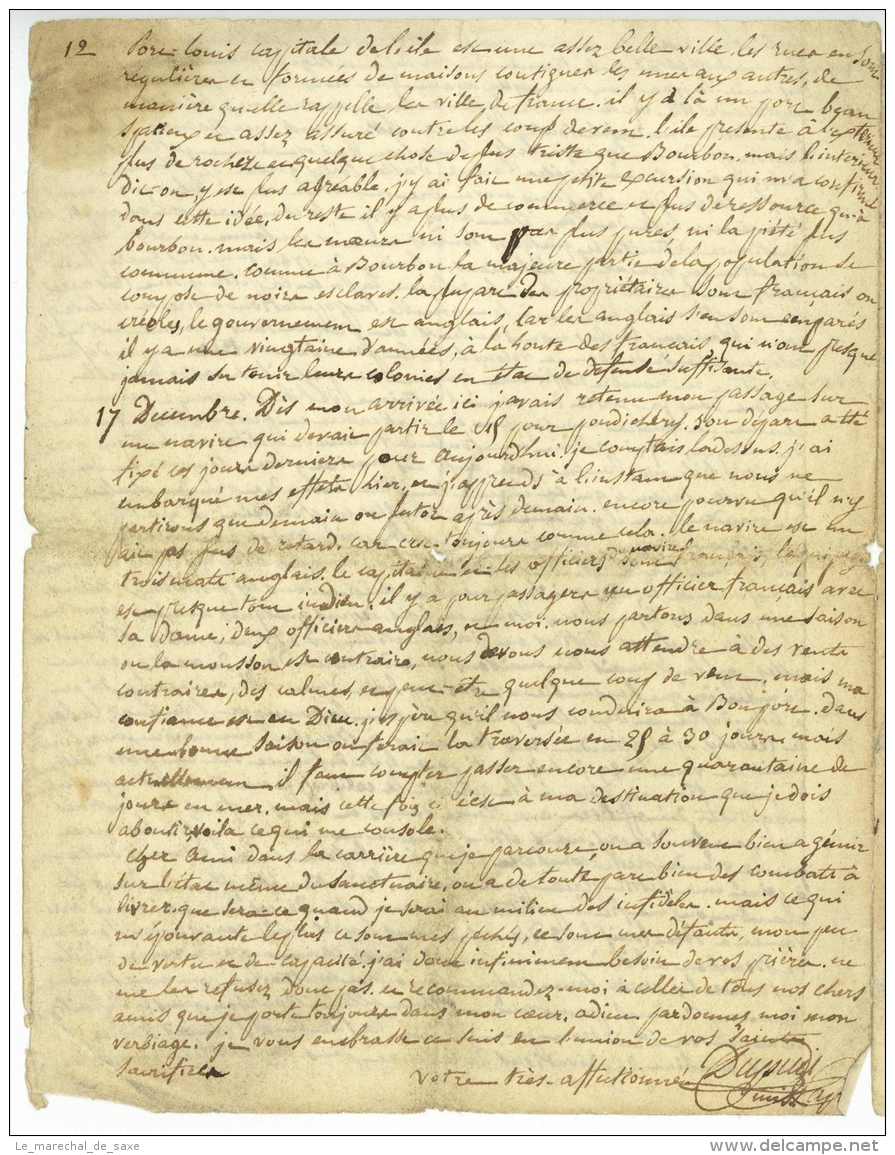 12 Port-louis capitale de l'ile est une assez belle ville. les rues en sont
regulières et formées de maisons contigues les unes aux autres, de
manière qu'elle rappelle les ville de france. il y a là un port beau
spacieux et assez assuré contre les coups de vent. l'ile presente à l'exterieur
plus de rochers et quelque chose de plus triste que Bourbon. mais l'interieur
dit-on, y est plus agréable. j'y ai fait une petite excursion qui m'a confirmé
dans cette idée. du reste il y a plus de commerce et plus de ressource qu'à
bourbon. mais les mœurs ni sont pas plus pures, ni la piété plus
commune. comme à Bourbon la majeure partie de la population se
compose de noirs esclaves. la plupart des propriétaires sont français ou
créoles, le gouvernement est anglais, car les anglais s'en sont emparés
il y a une vingtaine d'années, à la honte des français qui n'ont presque
jamais su tenir leurs colonies en état de défense suffisante.
17 Decembre. Dès mon arrivée ici j'avais retenu mon passage sur
un navire qui devait partir le 15 pour pondichéry. son départ a été
fixé ces jours derniers pour aujourdhui. je comptais la dessus. j'ai
embarqué mes effets hier, et j'apprends à l'instant que nous ne
partirons que demain ou plutot après demain. encore pourvu qu'il n'y
ait pas plus de retard. car c'est toujours comme cela. le navire est un
trois mats anglais. le capitaine et les officiers du navire sont français, l'equipage
est presque tout indien. il y a pour passagers un officier français avec
sa dame, deux officiers anglais, et moi. nous partons dans une saison
ou la mousson est contraire, nous devons nous attendre à des vents
contraires, des calmes, et peut-etre quelque coup de vent. mais ma
confiance est en Dieu. j'espère qu'il nous conduira à Bon port. dans
une bonne saison on ferait la traversée en 25 à 30 jours, mais
actuellement il faut compter passer encore une quarantaine de
jours en mer. mais cette fois ci c'est à ma destination que je dois
aboutir, voila ce qui me console.
Cher ami dans la carrière que je parcours, on a souvent bien a gémir
sur l'état même du sanctuaire, on a de toute part bien des combats à
livrer. que sera-ce quand je serai au milieu des infidèles. mais ce qui
m'épouvante le plus ce sont mes péchés, ce sont mes défauts, mon peu
de vertu et de capacité. j'ai donc infiniment besoin de vos prières. ne
me les refusez donc pas. et recommandez-moi à celles de tous nos chers
amis que je porte toujours dans mon cœur. adieu pardonnez moi mon
verbiage. je vous embrasse et suis en l'union de vos saints
sacrifices
votre très-affectionné Dupuis
Le_marechal_de_saxe
www.delcampe.net